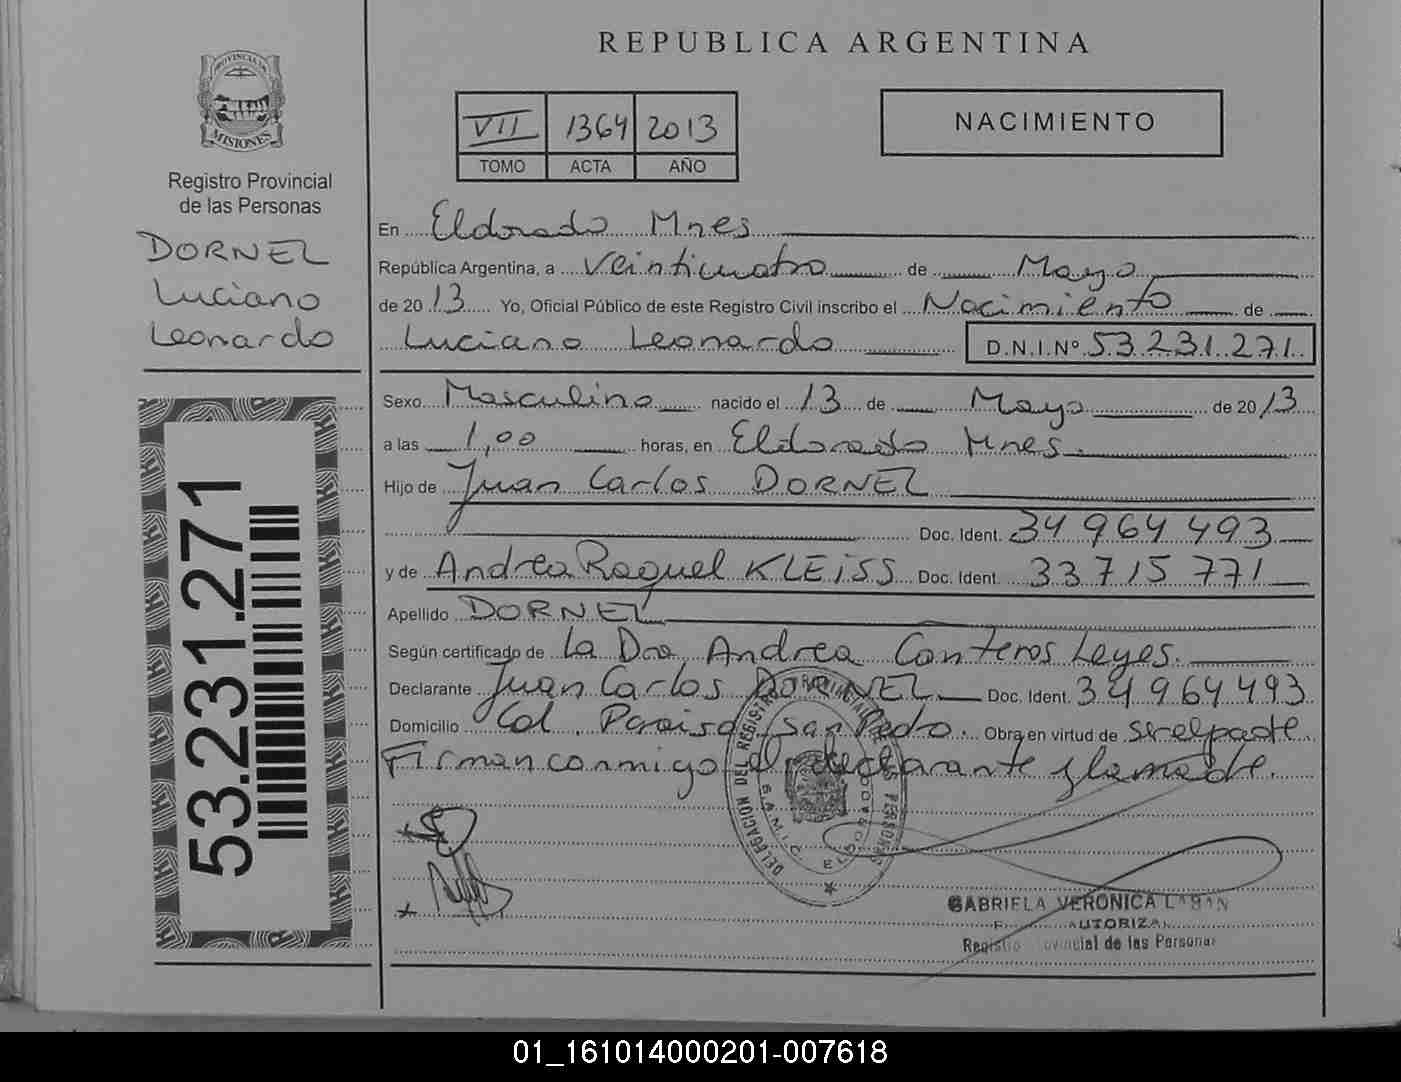 REPUBLICA ARGENTINA
PROVINCIA DE
MISIONES
Registro Provincial
de las Personas
DORNEL
Luciano
Leonardo
53.231.271
VII 1364 2013
TOMO ACTA AÑO
NACIMIENTO
En Eldorado Mnes
República Argentina, a Veinticuatro de Mayo
de 2013 Yo, Oficial Público de este Registro Civil inscribo el Nacimiento de
Luciano Leonardo D.N.I.Nº 53.231.271
Sexo Masculino nacido el 13 de Mayo de 2013
a las 1,00 horas, en Eldorado Mnes.
Hijo de Juan Carlos DORNEL
Doc. Ident. 34 964 493
y de Andrea Raquel KLEiSS Doc. Ident. 33 715 771
Apellido DORNEL
Según certificado de La Dra Andrea Conteros Leyes.
Declarante Juan Carlos DORNEL Doc. Ident. 34 964 493
Domicilio Col. Paraiso San Pedro. Obra en virtud de
Firman conmigo el declarante y la madre.
DELEGACION DEL REGISTRO PROVINCIAL DE LAS PERSONAS
S.A.M.I.C. ELDORADO
GABRIELA VERONICA
AUTORIZA
Registro Provincial de las Personas
01_161014000201-007618